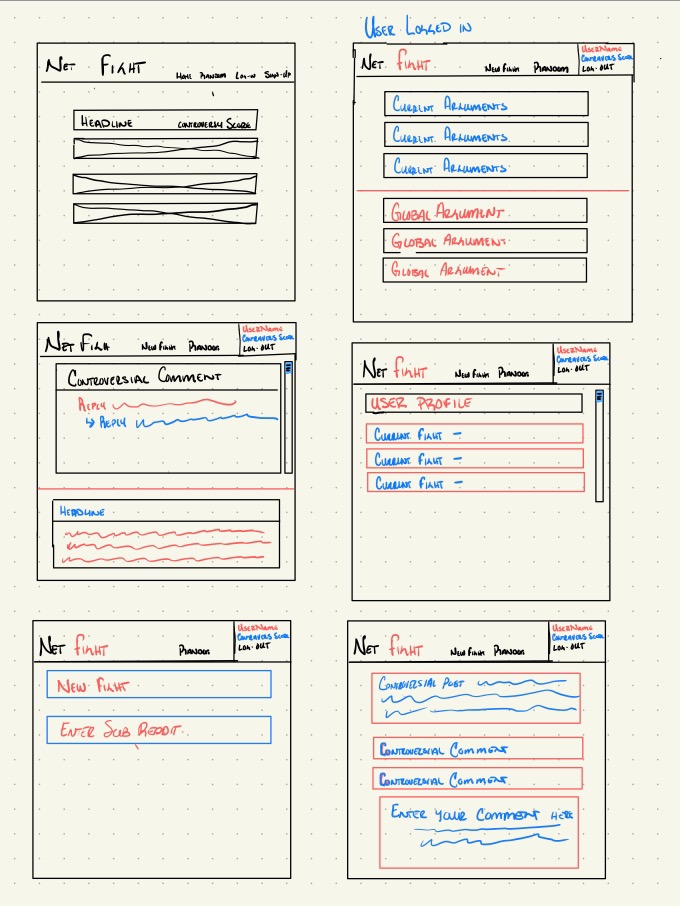 USER LOGGED IN
NET FIGHT
HOME RANDOM LOG-IN SIGN-UP
HEADLINE CONTROVERSY SCORE
NET FIGHT NEW FIGHT RANDOM
USERNAME
LOG-OUT
CURRENT ARGUMENTS
CURRENT ARGUMENTS
CURRENT ARGUMENTS
GLOBAL ARGUMENT
GLOBAL ARGUMENT
GLOBAL ARGUMENT
NET FIGH NEW FIGHT RANDOM
USERNAME
LOG-OUT
CONTROVERSIAL COMMENT
REPLY
REPLY
HEADLINE
NET FIGHT NEW FIGHT RANDOM
USERNAME
LOG-OUT
USER PROFILE
CURRENT FIGHT -
CURRENT FIGHT -
CURRENT FIGHT -
NET FIGHT RANDOM
USERNAME
LOG-OUT
NEW FIGHT
ENTER SUB REDDIT
NET FIGHT NEW FIGHT RANDOM
USERNAME
LOG-OUT
CONTROVERSIAL POST
CONTROVERSIAL COMMENT
CONTROVERSIAL COMMENT
ENTER YOUR COMMENT HERE